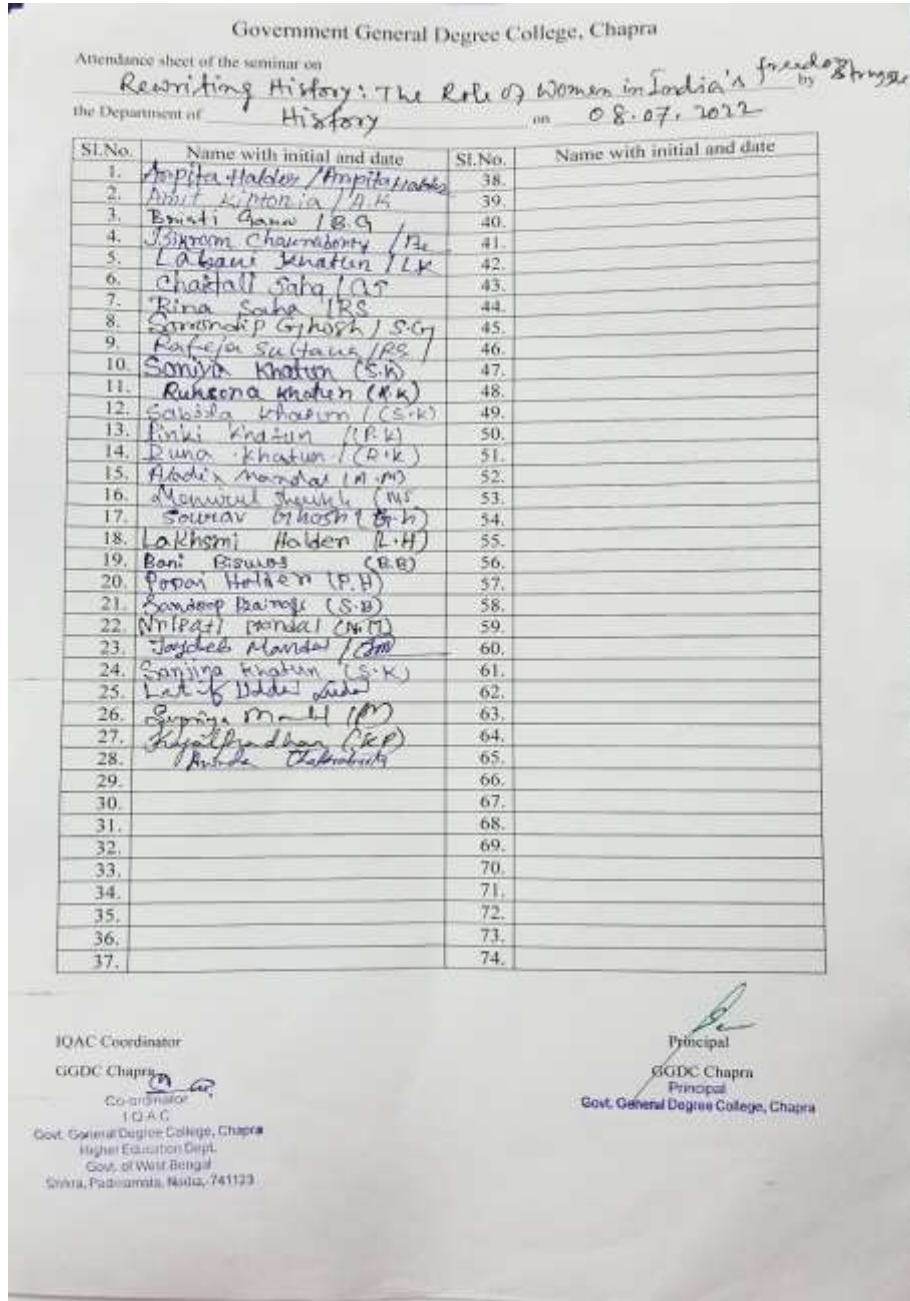 Government General Degree College, Chapra
Attendance sheet of the seminar on
Rewriting History: The Role of Women in India's freedom Struggle by
the Department of History on 08.07.2022
Sl.No. Name with initial and date Sl.No. Name with initial and date
1. Arpita Halder / Arpita Halder 38.
2. Amit / A.K 39.
3. Bristi / B.G 40.
4. Bikrom Chakraborty 41.
5. Labani Khatun / LK 42.
6. Chaitali Saha 43.
7. Rina Saha / RS 44.
8. Ghosh / S.G 45.
9. Rafeja Sultana / RS 46.
10. Soniya Khatun (S.K) 47.
11. Ruksona Khatun (R.K) 48.
12. Khatun / (S.K) 49.
13. Pinki Khatun (P.K) 50.
14. Runa Khatun / (R.K) 51.
15. Mandal (A.M) 52.
16. Sheikh (MS 53.
17. Sourav Ghosh 54.
18. Lakhsmi Halder (L.H) 55.
19. Bani Biswas (B.B) 56.
20. Popai Halder (P.H) 57.
21. Sandeep Bairagi (S.B) 58.
22. Nripati Mondal (N.M) 59.
23. Joydeb Mandal / JM 60.
24. Sanjina Khatun (S.K) 61.
25. Latif 62.
26. Supriya 63.
27. Kajal Pradhan (KP) 64.
28. Chakraborty 65.
29. 66.
30. 67.
31. 68.
32. 69.
33. 70.
34. 71.
35. 72.
36. 73.
37. 74.
IQAC Coordinator Principal
GGDC Chapra GGDC Chapra
Co-ordinator Principal
IQAC Govt. General Degree College, Chapra
Govt. General Degree College, Chapra
Higher Education Dept.
Govt. of West Bengal
Nadia,-741123